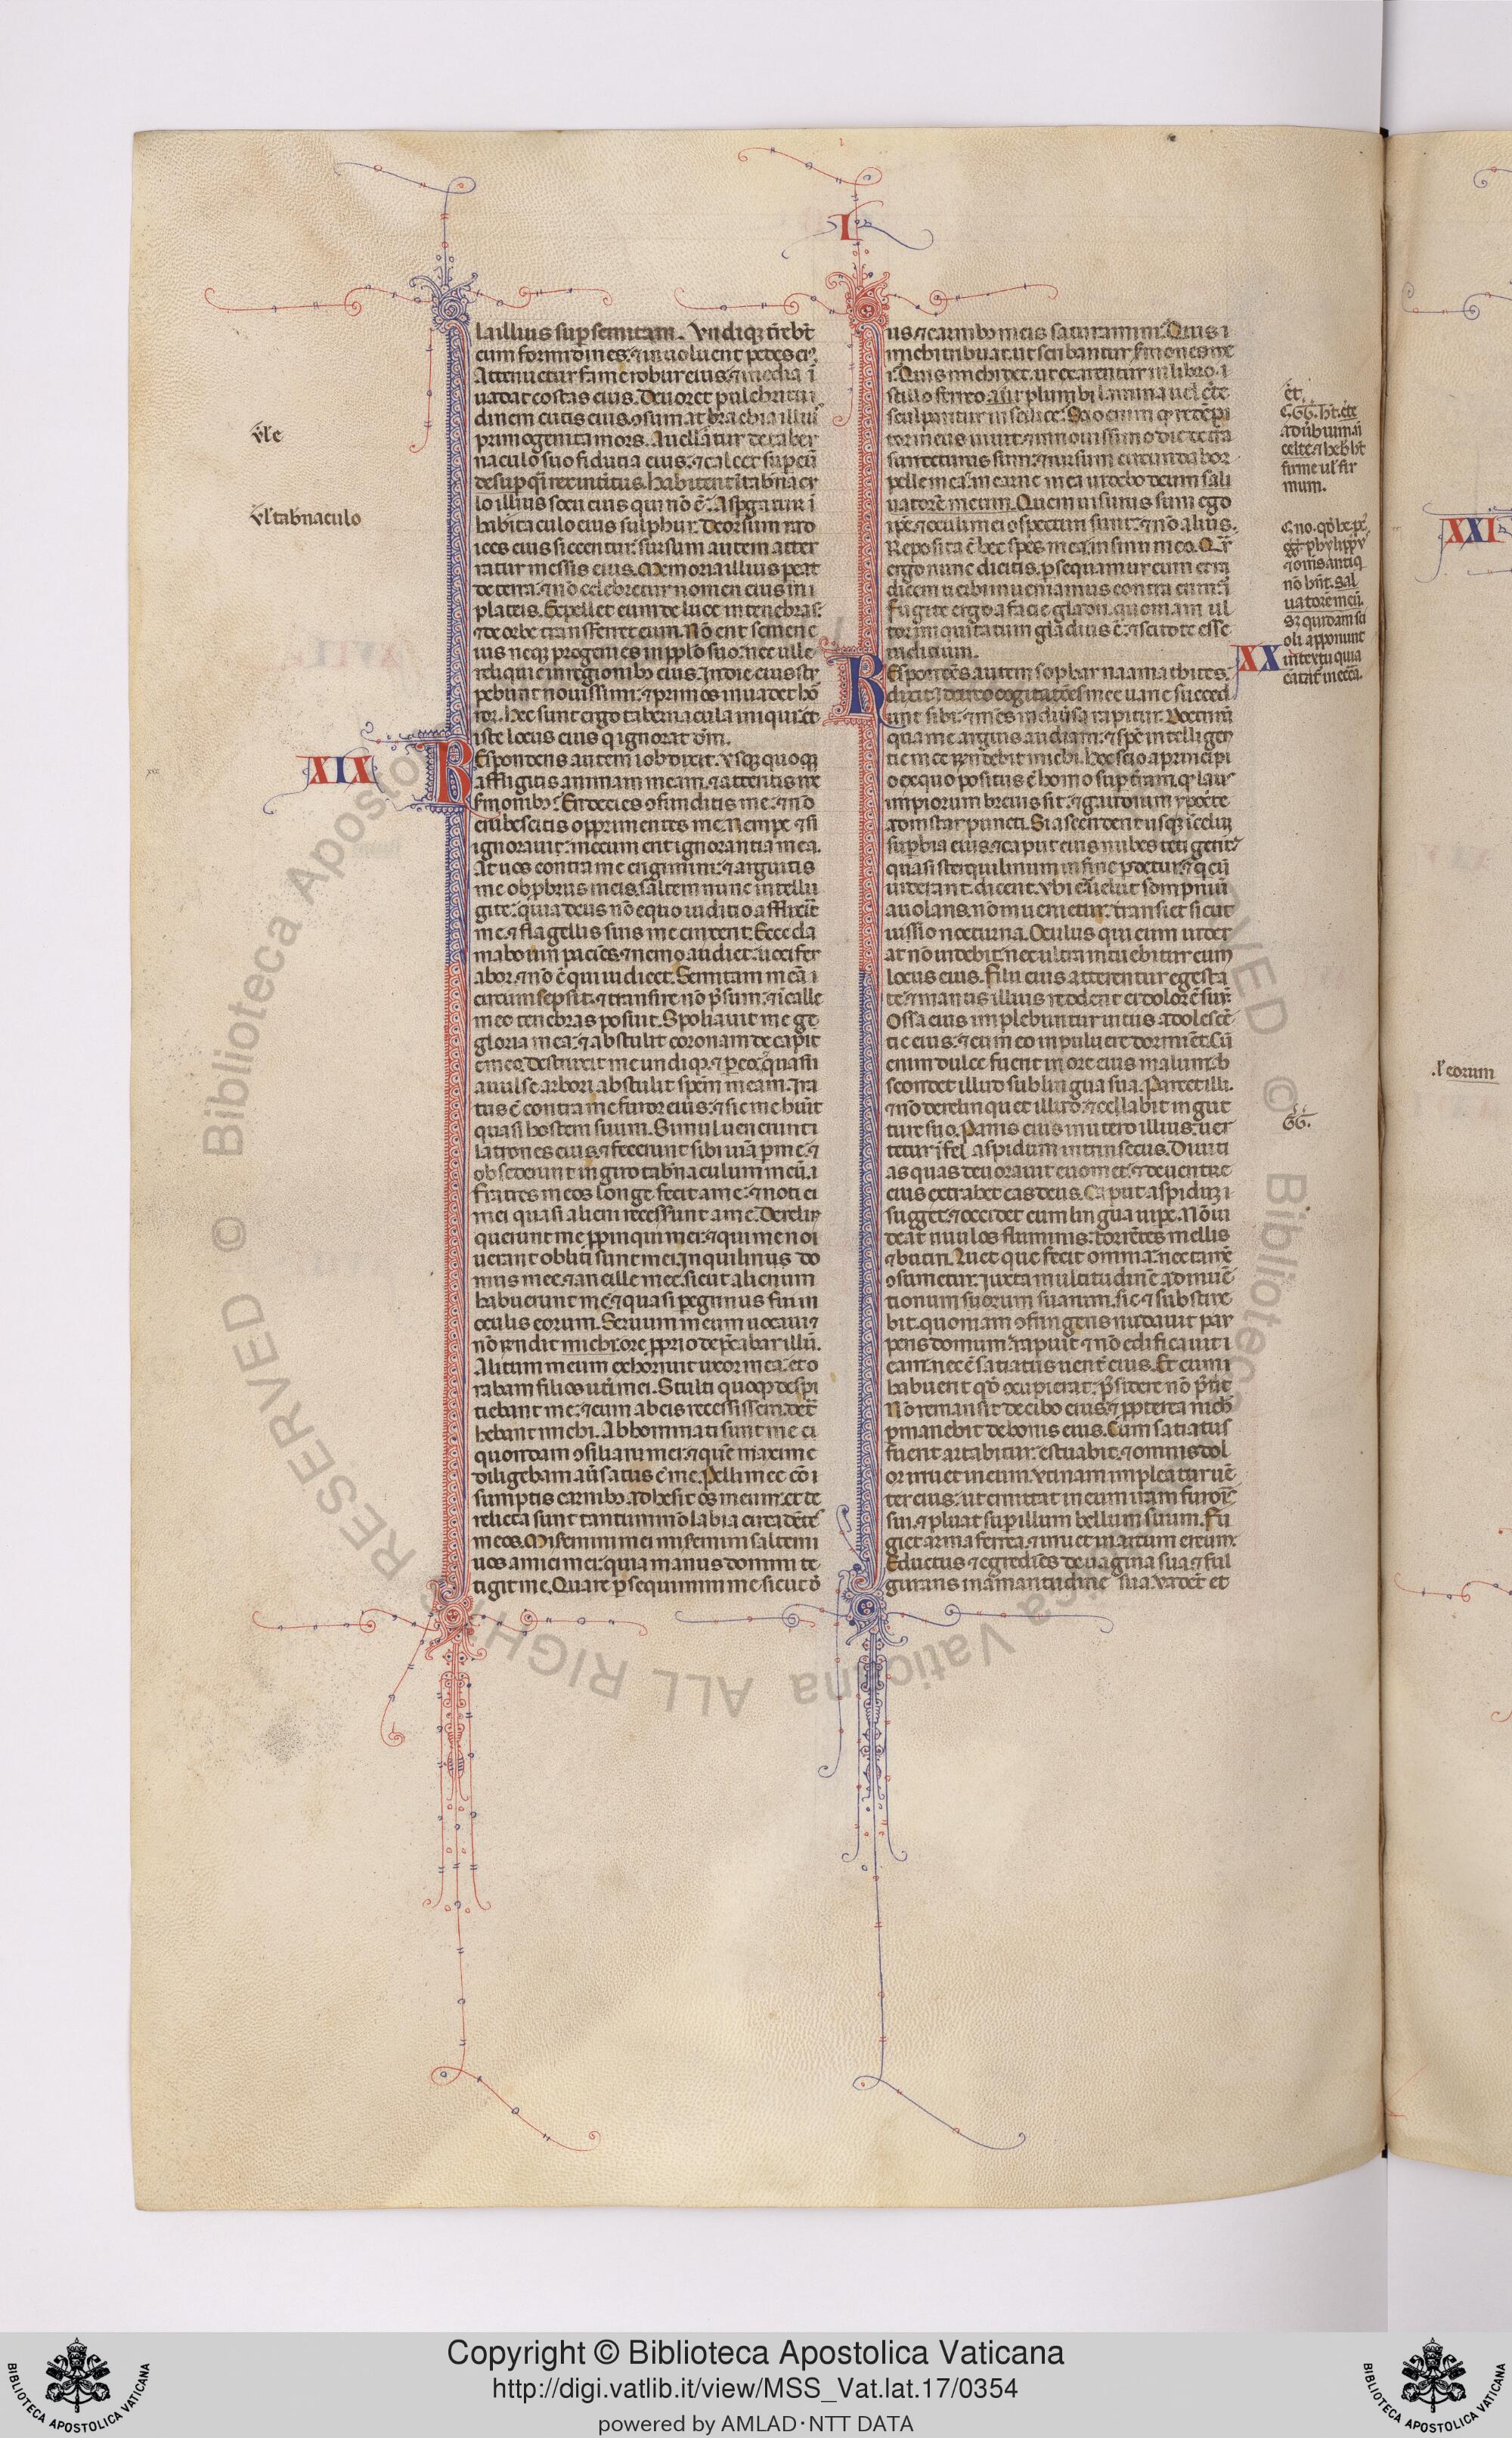 I
la illius sup semitam. Vndiqʒ t̄reb̄t
eum formidines. ⁊ inuoluent pedes eiꝰ.
Attenuetur fame robur eius. ⁊ inedia ī
uadat costas eius. Deuoret pulchritu
dinem cutis eius. ꝯsumat brachia illiꝰ
primogenita mors. Auellatur de taber
naculo suo fiducia eius. ⁊ calcet sup eū
desup q̄i rex interitus. Habitent ī tab̄nac̄
lo illius socii eius qui nō ē. Aspgatur ī
habitaculo eius sulphur. Deorsum rad
ices eius siccentur. sursum autem atter
ratur messis eius. Memoria illius peat
de terra. ⁊ nō celebretur nomen eius in
plateis. Expellet eum de luce in tenebras.
⁊ de orbe transferret eum. Nō erit semen e
ius neqʒ progenies in pplo suo. nec ulle
reliquie in regionibꝰ eius. In die eius stu
pebunt nouissimi. ⁊ primos inuadet ho
ror. Hec sunt ergo tabernacula iniqui. et
iste locus eius q ignorat dm̄.
Respondens autem iob dixit. Vsqʒ quoqʒ
affligitis animam meam. ⁊ attentis me
ẜmonibꝰ. En decies ꝯfunditis me. ⁊ nō
erubescitis opprimentes me. Nempe ⁊ si
ignoraui. mecum erit ignorantia mea.
At uos contra me erigimini. ⁊ arguitis
me obprbriis meis. saltem nunc intelli
gite. quia deus nō equo iuditio afflixit
me. ⁊ flagellis suis me cinxerit. Ecce cla
mabo uim paciēs. ⁊ nemo audiet. uocifer
abor. ⁊ nō ē qui iudicet. Semitam meā
circumsepsit. ⁊ transire nō possum. ⁊ ī calle
meo tenebras posuit. Spoliauit me
gloria mea. ⁊ abstulit coronam de capit
e meo. Destruxit me undiqʒ. ⁊ peo. ⁊ quasi
auulse arbori abstulit spem meam. Ira
tus ē contra me furor eius. ⁊ sic me habuit
quasi hostem suum. Simul uenerunt
latrones eius. ⁊ fecerunt sibi uiā p me. ⁊
obsederunt in giro tab̄naculum meū.
fratres meos longe fecit a me. ⁊ noti
mei quasi alieni recesserunt a me. Dereliq̄
querunt me ppinqui mei. ⁊ qui me no
uerant obliti sunt mei. Inquilinus do
mus mee. ⁊ ancille mee. sicut alienum
habuerunt me. ⁊ quasi pegrinus fui in
oculis eorum. Seruum meum uocaui. ⁊
nō rn̄dit michi. ore pprio depcabar illū.
Alitum meum exhorruit uxor mea. et o
rabam filios ut̄i mei. Stulti quoqʒ despi
tiebant me. ⁊ cum ab eis recessissem det̄
hebant michi. Abhominati sunt me
quondam ꝯsiliarii mei. ⁊ quē maxime
diligebam auersatus ē me. Pelli mee cō
sumptis carnibꝰ. adhesit os meum. et de
relicta sunt tantummō labia circa dētes
meos. Miseremini mei miseremini saltem
uos amici mei. quia manus domini te
tigit me. Quare psequimini me sicut ds̄
us. ⁊ carnibꝰ meis saturamini. Quis
michi tribuat. ut scribantur ẜmones me
i. Quis michi det. ut exarentur in libro.
stillo ferreo aut plumbi lamina uel c̄te
sculpantur in silice. Scio enim qꝫ redēp
tor meus uiuit. ⁊ in nouissimo die de t̄ra
surrecturus sum. ⁊ rursum circundabor
pelle mea. ⁊ in carne mea uidebo deum sal
uatorē meum. Quem uisurus sum ego
ip̄e. ⁊ oculi mei ꝯspecturi sunt. ⁊ nō alius.
Reposita ē hec spes mea. in sinu meo. Qr̄
ergo nunc dicitis. psequamur eum et ra
dicem uerbi inueniamus contra eum.
fugite ergo a facie gladii. quoniam ul
tor iniquitatum gladius ē. ⁊ scitote esse
iuditium.
Respondēs autem sophar naamathites.
dixit. Idcirco cogitatōes mee uarie succed
unt sibi. ⁊ mēs in diūsa rapitur. Doctrinā
qua me arguis audiam. ⁊ spc̄ intelligen
tie mee rn̄debit michi. Hoc scio a principi
o ex quo positus ē homo sup t̄ram. qꝫ laus
impiorum breuis sit. ⁊ gaudium ypoc̄te
ad instar puncti. Si ascenderit usqʒ ī celū
supbia eius. ⁊ caput eius nubes tetigerit.
quasi sterquilinium in fine pdetur. ⁊ q eū
uiderant. dicent. ubi ē. Velut sompniū
auolans. nō inuenietur. transiet sicut
uissio nocturna. Oculus qui eum uider
at nō uidebit. nec ultra intuebitur eum
locus eius. Filii eius atterentur egesta
te. ⁊ manus illius reddent ei dolorē suū.
Ossa eius implebuntur uitiis adolescē
tie eius. ⁊ cum eo in puluere dormiēt. Cū
enim dulce fuerit in ore eius malum. ab
scondet illud sub lingua sua. Parcet illi.
⁊ nō derelinquet illud. ⁊ cellabit in gut
ture suo. Panis eius in utero illius. uer
tetur ī fel aspidum intrinsecus. Diuiti
as quas deuorauit euomet. ⁊ de uentre
eius extrahet eas deus. Caput aspidūʒ
sugget. ⁊ occidet eum lingua uipe. Nō ui
deat riuulos fluminis. torrētes mellis
⁊ butiri. Luet que fecit omnia. nec tamē
ꝯsumetur. Iuxta multitudinē adinuē
tionum suarum suarum. sic ⁊ sustine
bit. quoniam ꝯfringens nudauit pau
peris domum. rapuit ⁊ nō edificauit
eam. nec ē satiatus uent̄ eius. Et cum
habuerit qd̄ cupierat. possidere nō pot̄it
Nō remansit de cibo eius. ⁊ ppterea nich̄
pmanebit de bonis eius. Cum satiatus
fuerit artabitur. estuabit. ⁊ omnis dol
or irruet in eum. Vtinam impleatur uē
ter eius. ut emittat in eum iram furoris
sui. ⁊ pluat sup illum bellum suum. Fu
giet arma ferrea. ⁊ irruet in arcum ereum.
Eductus ⁊ egrediēs de uagina sua. ⁊ ful
gurans in amaritudine sua. uadēt et
XIX
XX
XXI
ul̄ tab̄naculo
firme ul̄ fir
mum.
⁊ om̄s antiq
nō hn̄t. sal
uatorē meū.
sʒ quidam
oli apponunt
in textu quia
GG.
.l̄ eorum
Biblioteca Apostolica Vaticana ALL RIGHTS RESERVED ©
Copyright © Biblioteca Apostolica Vaticana
http://digi.vatlib.it/view/MSS_Vat.lat.17/0354
powered by AMLAD·NTT DATA
BIBLIOTECA APOSTOLICA VATICANA
BIBLIOTECA APOSTOLICA VATICANA